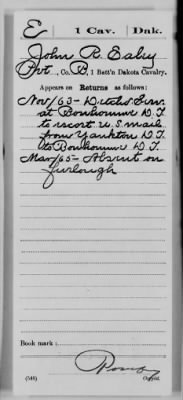 E | 1 Cav. | Dak.
John R.
Pvt., Co. B, 1 Batt'n Dakota Cavalry.
Appears on Returns as follows:
Nov/63 - Det'chd Serv.
at Bonhomme D.T.
to escort U.S. mail
from Yankton D.T.
to Bonhomme D.T.
Mar/65 - Absent on
furlough
Book mark:
(546)
Copyist.